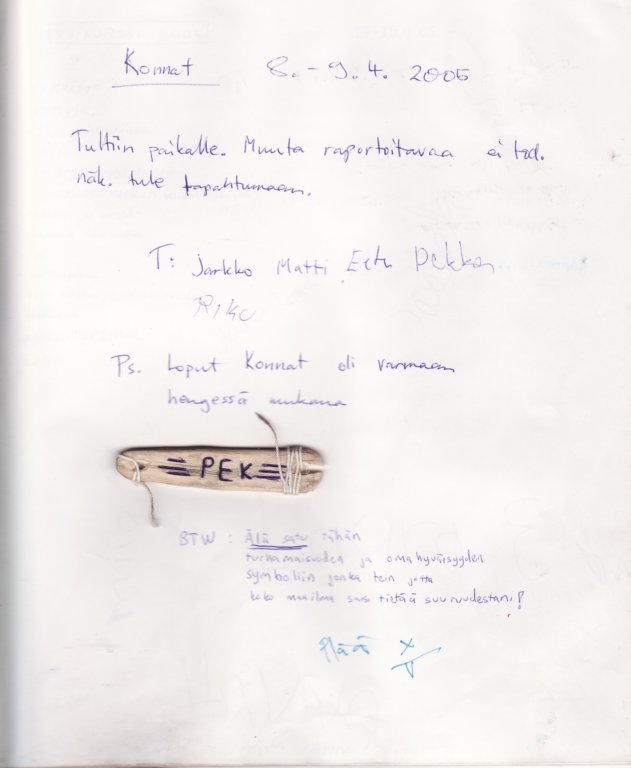 Konnat 8.-9.4. 2005
Tultiin paikalle. Muuta raportoitavaa ei tod.
näk. tule tapahtumaan.
T: Jarkko Matti Eetu Pekka
Riku
Ps. Loput Konnat oli varmaan
hengessä mukana
PEK
BTW : Älä satu tähän
turhamaisuuden ja omahyväisyyden
symboliin jonka tein jotta
koko maailma saisi tietää suuruudestani!